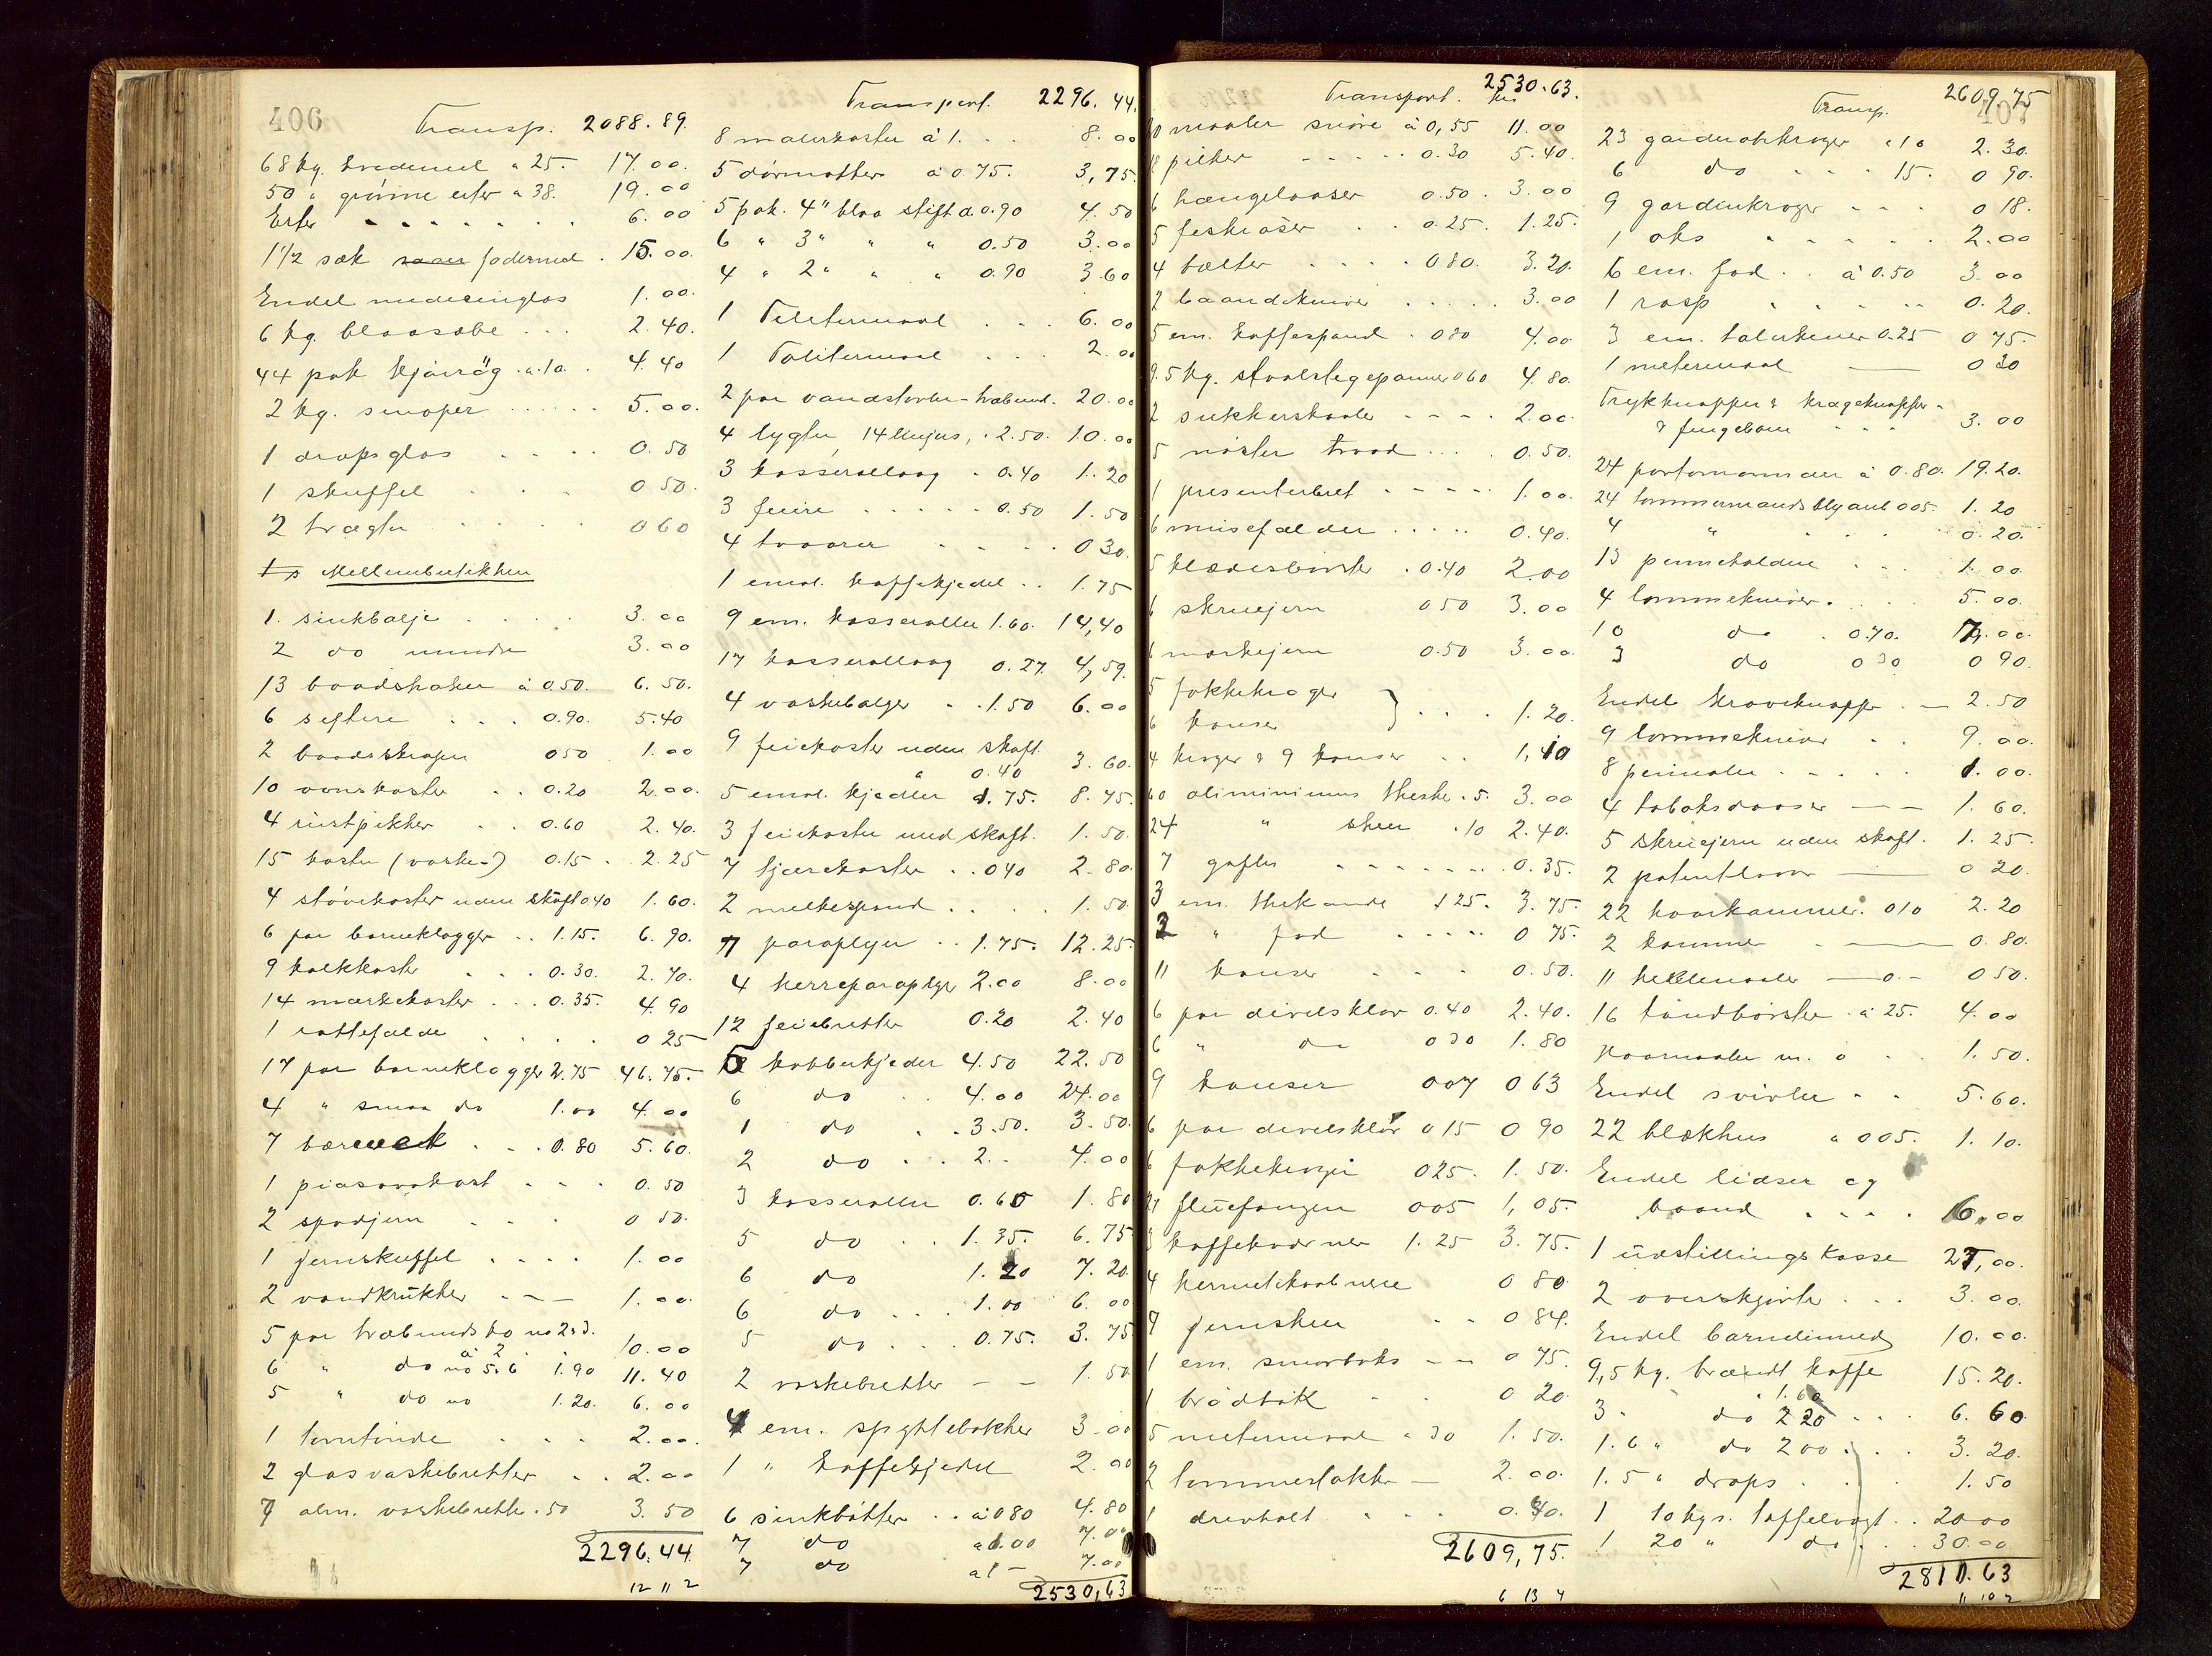 406
Transp. 2088.89.
68 kg. hvedemel a 25. 17.00.
50 " grønne erter a 38. 19.00
Erter 6.00
1 1/2 sæk fodermel 15.00.
Endel medesinglas 1.00.
6 kg. blaasæbe 2.40.
44 pak kjøirøg a 10 4.40
2 kg. sinoper 5.00.
1 dropsglas 0.50
1 skuffel 0.50.
2 trægter 0 60
Mellembutikken
1. sinkbalje 3.00
2 do mindre 3.00
13 baadshaker à 0.50. 6.50.
6 seftere 0.90. 5.40
2 baadsskraper 0 50 1.00
10 ovnskoster 0.20 2.00.
4 rustpikker 0.60 2.40.
15 koster (vaske-) 0.15 2.25
4 støvekoster uden skaft 0 40 1.60.
6 par barneklogger 1.15. 6.90.
9 kalkkoster 0.30. 2.70.
14 mærkekoster 0.35. 4.90
1 rottefælde 0 25
17 par barneklogger 2.75 46.75.
4 " smaa do 1.00 4.00
7 0.80 5.60.
1 piasavakost 0.50
2 spadjern 0 50.
1 jernskuffel 1.00
2 vandkrukker 1.00.
5 par træbundsko no 2 & 3.
à 2 10.00
6 " do no 5 & 6 1.90 11.40
5 " do no 1.20. 6.00
1 tomtønde 2.00.
2 glasvaskebretter 2.00
7 alm. vaskebretter .50 3.50
2296.44
12 11 2
Transport. 2296.44.
8 malerkoster à 1. 8.00
5 dørmatter à 0.75. 3,75
5 pak. 4" blaa stift a 0.90 4.50
6 " 3" " " 0.50 3.00
4 " 2" " " 0.90 3 60
1 6.00
1 2.00
2 par vandstøvler-træbund. 20.00
4 lygter, 14 linjers, 2.50. 10.00
3 kasserollaag 0.40 1.20
3 feiere 0.50 1.50
4 tvaarer 0 30.
1 emal. kaffekjedel 1.75
9 em. kasseroller 1.60. 14,40
17 kasserollaag 0.27. 4,59.
4 vaskebaljer 1.50 6.00
9 feiekoster uden skaft.
à 0.40 3.60.
5 emal. kjedler 1.75. 8.75.
3 feiekoster med skaft. 1.50.
7 tjærekoster 0 40 2.80.
2 melkespand 1.50
7 paraplyer 1.75. 12.25.
4 herreparaplyer 2.00 8.00
12 feiebretter 0.20 2.40
5 kobberkjedler 4.50 22.50
6 do 4.00 24.00
1 do 3.50. 3.50.
2 do 2.- 4.00
3 kasseroller 0.60 1.80
5 do 1.35. 6.75
6 do 1.20 7.20
6 do 1.00 6.00
5 do 0.75. 3.75
2 vaskebretter 1.50
4 em. spyttebakker 3.00
1 " kaffekjedel 2.00
6 sinkbøtter à 0 80 4.80
7 do a 1.00 7.00
7 do a 1 - 7.00
2530,63
Transport. 2530.63.
maaler snøre à 0,55 11.00
pilker 0.30 5.40.
6 hængelaaser 0.50. 3.00
5 0.25. 1.25.
4 bælter 0 80. 3.20.
2 baandkniver 3.00
5 em. kaffespand 0 80 4.00
9.5 kg. staalstegepanner 0 60 4.80
2 sukkerskaaler 2.00.
5 nøster traad 0.50.
1 presenterbret 1.00.
6 musefælder 0.40.
5 klædesbørster 0.40 2.00
6 skruejern 0 50 3.00
6 merkejern 0.50 3.00
5 fokkekroger
6 kauser } 1.20.
4 kroger & 9 kauser 1,10
60 aliminiums theske. 5. 3.00
24 " skeer .10 2.40.
7 gafler 0.35.
3 em. thekande 1 25. 3.75.
2 " fad 0 75.
11 kauser 0.50.
6 par divelsklør 0.40 2.40.
6 " do 0 30 1.80
9 kauser 0 07 0 63
6 par divelsklør 0 15 0 90
6 fokkekroger 0 25. 1.50.
21 fluefanger 0 05 1,05.
3 kaffekværner 1.25 3.75.
4 hermetikaabnere 0 80
7 jernskeer 0 84.
1 em. smørboks 0 75.
1 brødbak 0 20
5 metermaal a 30 1.50.
2 tømmersakker 2.00.
1 drevholt 0.40.
2609,75.
6 13 4
407
Transp. 2609.75
23 garderobekroger a 10 2.30.
6 do 15. 0 90.
9 gardinkroger 0 18.
1 øks 2.00
6 em. fad à 0.50 3.00
1 rasp 0.20.
3 em. talerkener 0.25 0 75.
1 metermaal 0 30
Trykknapper & krageknapper
& fingebøin 3.00
24 portemonnæer à 0.80. 19.20.
24 tømmermandsblyant 0 05. 1.20
4 " 0.20.
13 penneholdere 1.00
4 lommekniver 5.00.
10 do 0.70. 7.00.
3 do 0 30 0 90.
Endel kraveknapper 2.50
9 lommekniver 9.00.
8 pennaler 1.00.
4 tobaksdaaser 1.60.
5 skruejern uden skaft. 1.25.
2 patentlaaser 0 20.
22 haarkammer 0 10 2.20
2 kamme 0.80.
11 heklenaaler 0 50.
16 tandbørster à 25. 4.00
Haarnaaler m. 1.50.
Endel svivler 5.60.
22 blækhus a 0 05. 1.10.
Endel lidser og
baand 6.00
1 udstillingskasse 25,00.
2 overskjorter 3.00.
Endel barnelinned 10.00.
9,5 kg. brændt kaffe
1.60 15.20.
3 " do 2 20 6.60.
1.6 " do 2 00 3.20.
1.5 " drops 1.50
1 10 kgs. taffelvægt 20 00
1 20 " do 30.00
2811.63
11 10 2